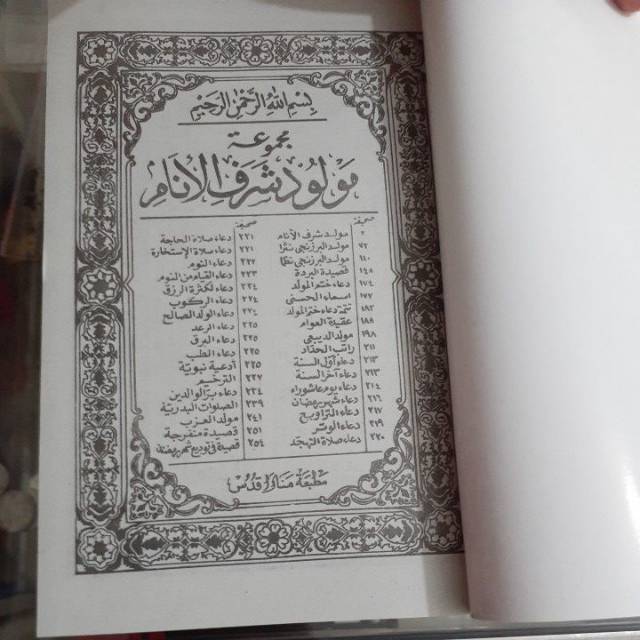 بسم الله الرحمن الرحيم
مجموعة
مولود شرف الأنام
صحيفة
٢ مولد شرف الأنام
٧٢ مولد البرزنجي نثرا
١١٠ مولد البرزنجي نظما
١٤٨ قصيدة البردة
١٧٤ دعاء ختم المولد
١٧٧ اسماء الحسنى
١٨٢ تتمة دعاء ختم المولد
١٨٨ عقيدة العوام
١٩٨ مولد الديبعي
٢١١ راتب الحداد
٢١٣ دعاء أول السنة
٢١٣ دعاء آخر السنة
٢١٤ دعاء يوم عاشوراء
٢١٦ دعاء شهر رمضان
٢١٧ دعاء التراويح
٢١٩ دعاء الوتر
٢٢٠ دعاء صلاة التهجد
صحيفة
٢٢١ دعاء صلاة الحاجة
٢٢١ دعاء صلاة الإستخارة
٢٢٢ دعاء النوم
٢٢٣ دعاء القيام من النوم
٢٢٤ دعاء لكثرة الرزق
٢٢٤ دعاء الركوب
٢٢٤ دعاء الولد الصالح
٢٢٥ دعاء الرعد
٢٢٥ دعاء البرق
٢٢٥ دعاء الطب
٢٢٥ أدعية نبوية
٢٢٧ الترحيم
٢٣٤ دعاء بر الوالدين
٢٣٩ الصلوات البدرية
٢٤١ مولد العزب
٢٥١ قصيدة منفرجة
٢٥٤ قصيدة في توديع شهر رمضان
مطبعة منارا قدس